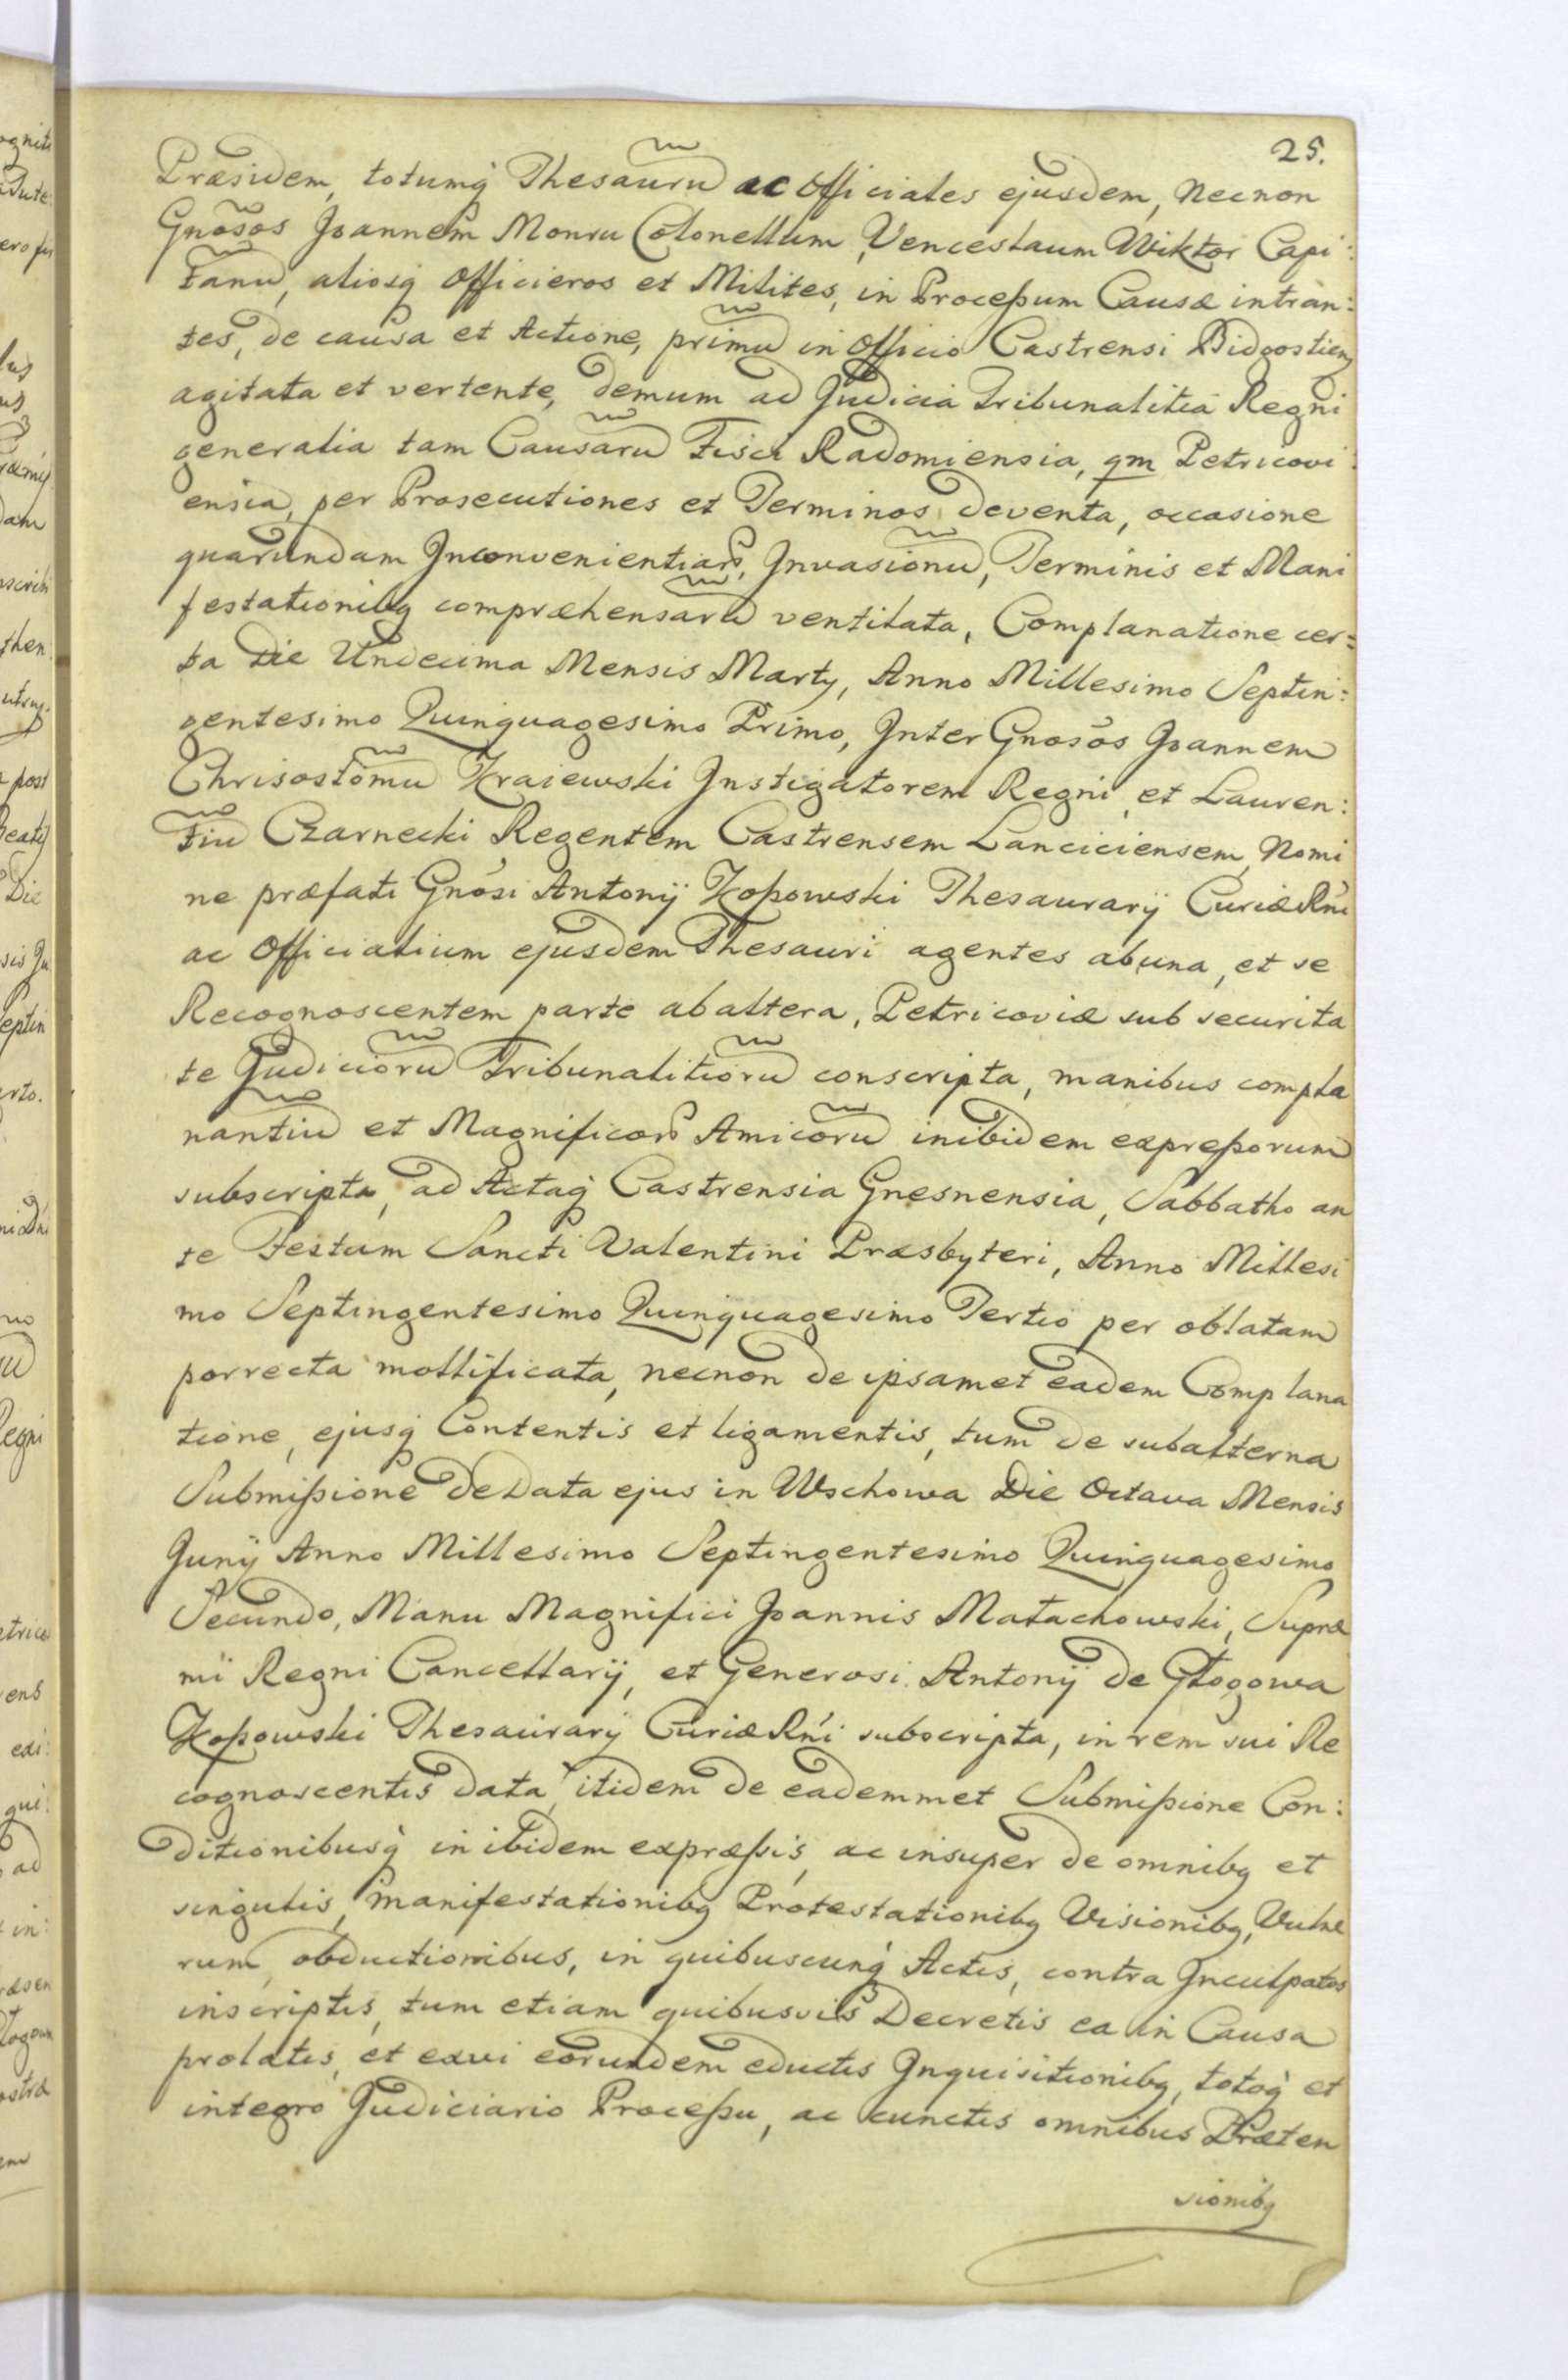 25.
Præsidem, totumq́ Thesaurũ ac Officiales ejusdem, Necnon
Gnosõs Joannem Monru Colonellum, Venceslaum Wiktor Capi:
tanũ, aliosq́ Officieros et Milites, in Proceßum Causæ intran:
tes, de causa et Actione, primũ in Officio Castrensi Bidgostien
agitata et vertente, demum ad Judicia Tribunalitia Regni
generalia tam Causarũ Fisci Radomiensia, qm Petricovi
ensia, per Prosecutiones et Terminos deventa, occasione
quarundam Inconvenientiarũ, Invasionũ, Terminis et Mani
festationibq compræhensarũ ventilata, Complanatione cer=
ta Die Undecima Mensis Martÿ, Anno Millesimo Septin:
gentesimo Quinquagesimo Primo, Inter Gnosõs Joannem
Chrisostomũ Krajewski Instigatorem Regni, et Lauren:
tiũ Czarnecki Regentem Castrensem Lanciciensem, Nomi
ne præfati Gnõsi Antonÿ Koßowski Thesaurarÿ Curiæ Rńi
ac Officialium ejusdem Thesauri agentes ab una, et se
Recognoscentem parte ab altera, Petricoviæ sub securita
te Judiciorũ Tribunalitiorũ conscripta, manibus compla
nantiũ et Magnificorũ Amicorũ inibidem expreßorum
subscripta, ad Actaq́ Castrensia Gnesnensia, Sabbatho an
te Festum Sancti Valentini Præsbyteri, Anno Millesi
mo Septingentesimo Quinquagesimo Tertio per oblatam
porrecta mollificata, necnon de ipsamet eadem Complana
tione, ejusq́ Contentis et ligamentis, tum de subalterna
Submißione de Data ejus in Wschowa Die Octava Mensis
Junÿ Anno Millesimo Septingentesimo Quinquagesimo
Secundo, Manu Magnifici Joannis Małachowski, Supræ
mi Regni Cancellarÿ, et Generosi Antonÿ de Głogowa
Koßowski Thesaurarÿ Curiæ Rńi subscripta, in rem sui Re
cognoscentis data, itidem de eademmet Submißione Con:
ditionibusq́ in ibidem expræßis, ac insuper de omnibq et
singulis, manifestationibq Protestationibq Visionibq, Vulne
rum, obductionibus, in quibuscunq́ Actis, contra Inculpatos
inscriptis, tum etiam quibusvis Decretis ea in Causa
prolatis, et exvi eorundem eductis Inquisitionibq, totoq́ et
integro Judiciario Proceßu, ac cunctis omnibus Præten
sionibq